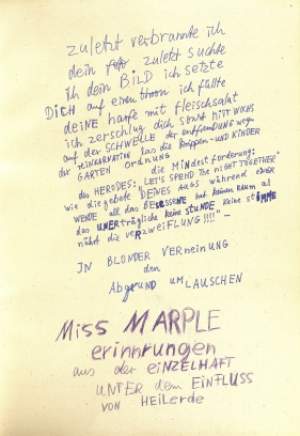 zuletzt verbrannte ich
dein zuletzt suchte
ich dein BiLD ich setzte
DiCH auf einen thron ich füllte
deiNE harfe mit fleischsalat
ich zerschlug dich sonst MiTTWOCHS
auf der SCHWELLE der entfremdung wegen
der reiNKARNATiON las die Krippen- UND KiNDER
GARTEN ORDNUNG
die MiNDEST forderung:
des HERODES: „LET'S SPEND THE NiGHT TOGETHER"
wie die gebote DEiNES AUGS während einer
WENDE all das BESESSENE hat keinen raum al
das UNERträgliche keine STUNDE keine STiMME
nährt die VERZWEiFLUNG !!!!" –
IN BLONDER VERNEiNUNG
den
AbGRUND UMLAUSCHEN
MiSS MARPLE
erinnrungen
aus der eiNZELHAFT
UNTER dem EiNFLUSS
VON HEiLERDE